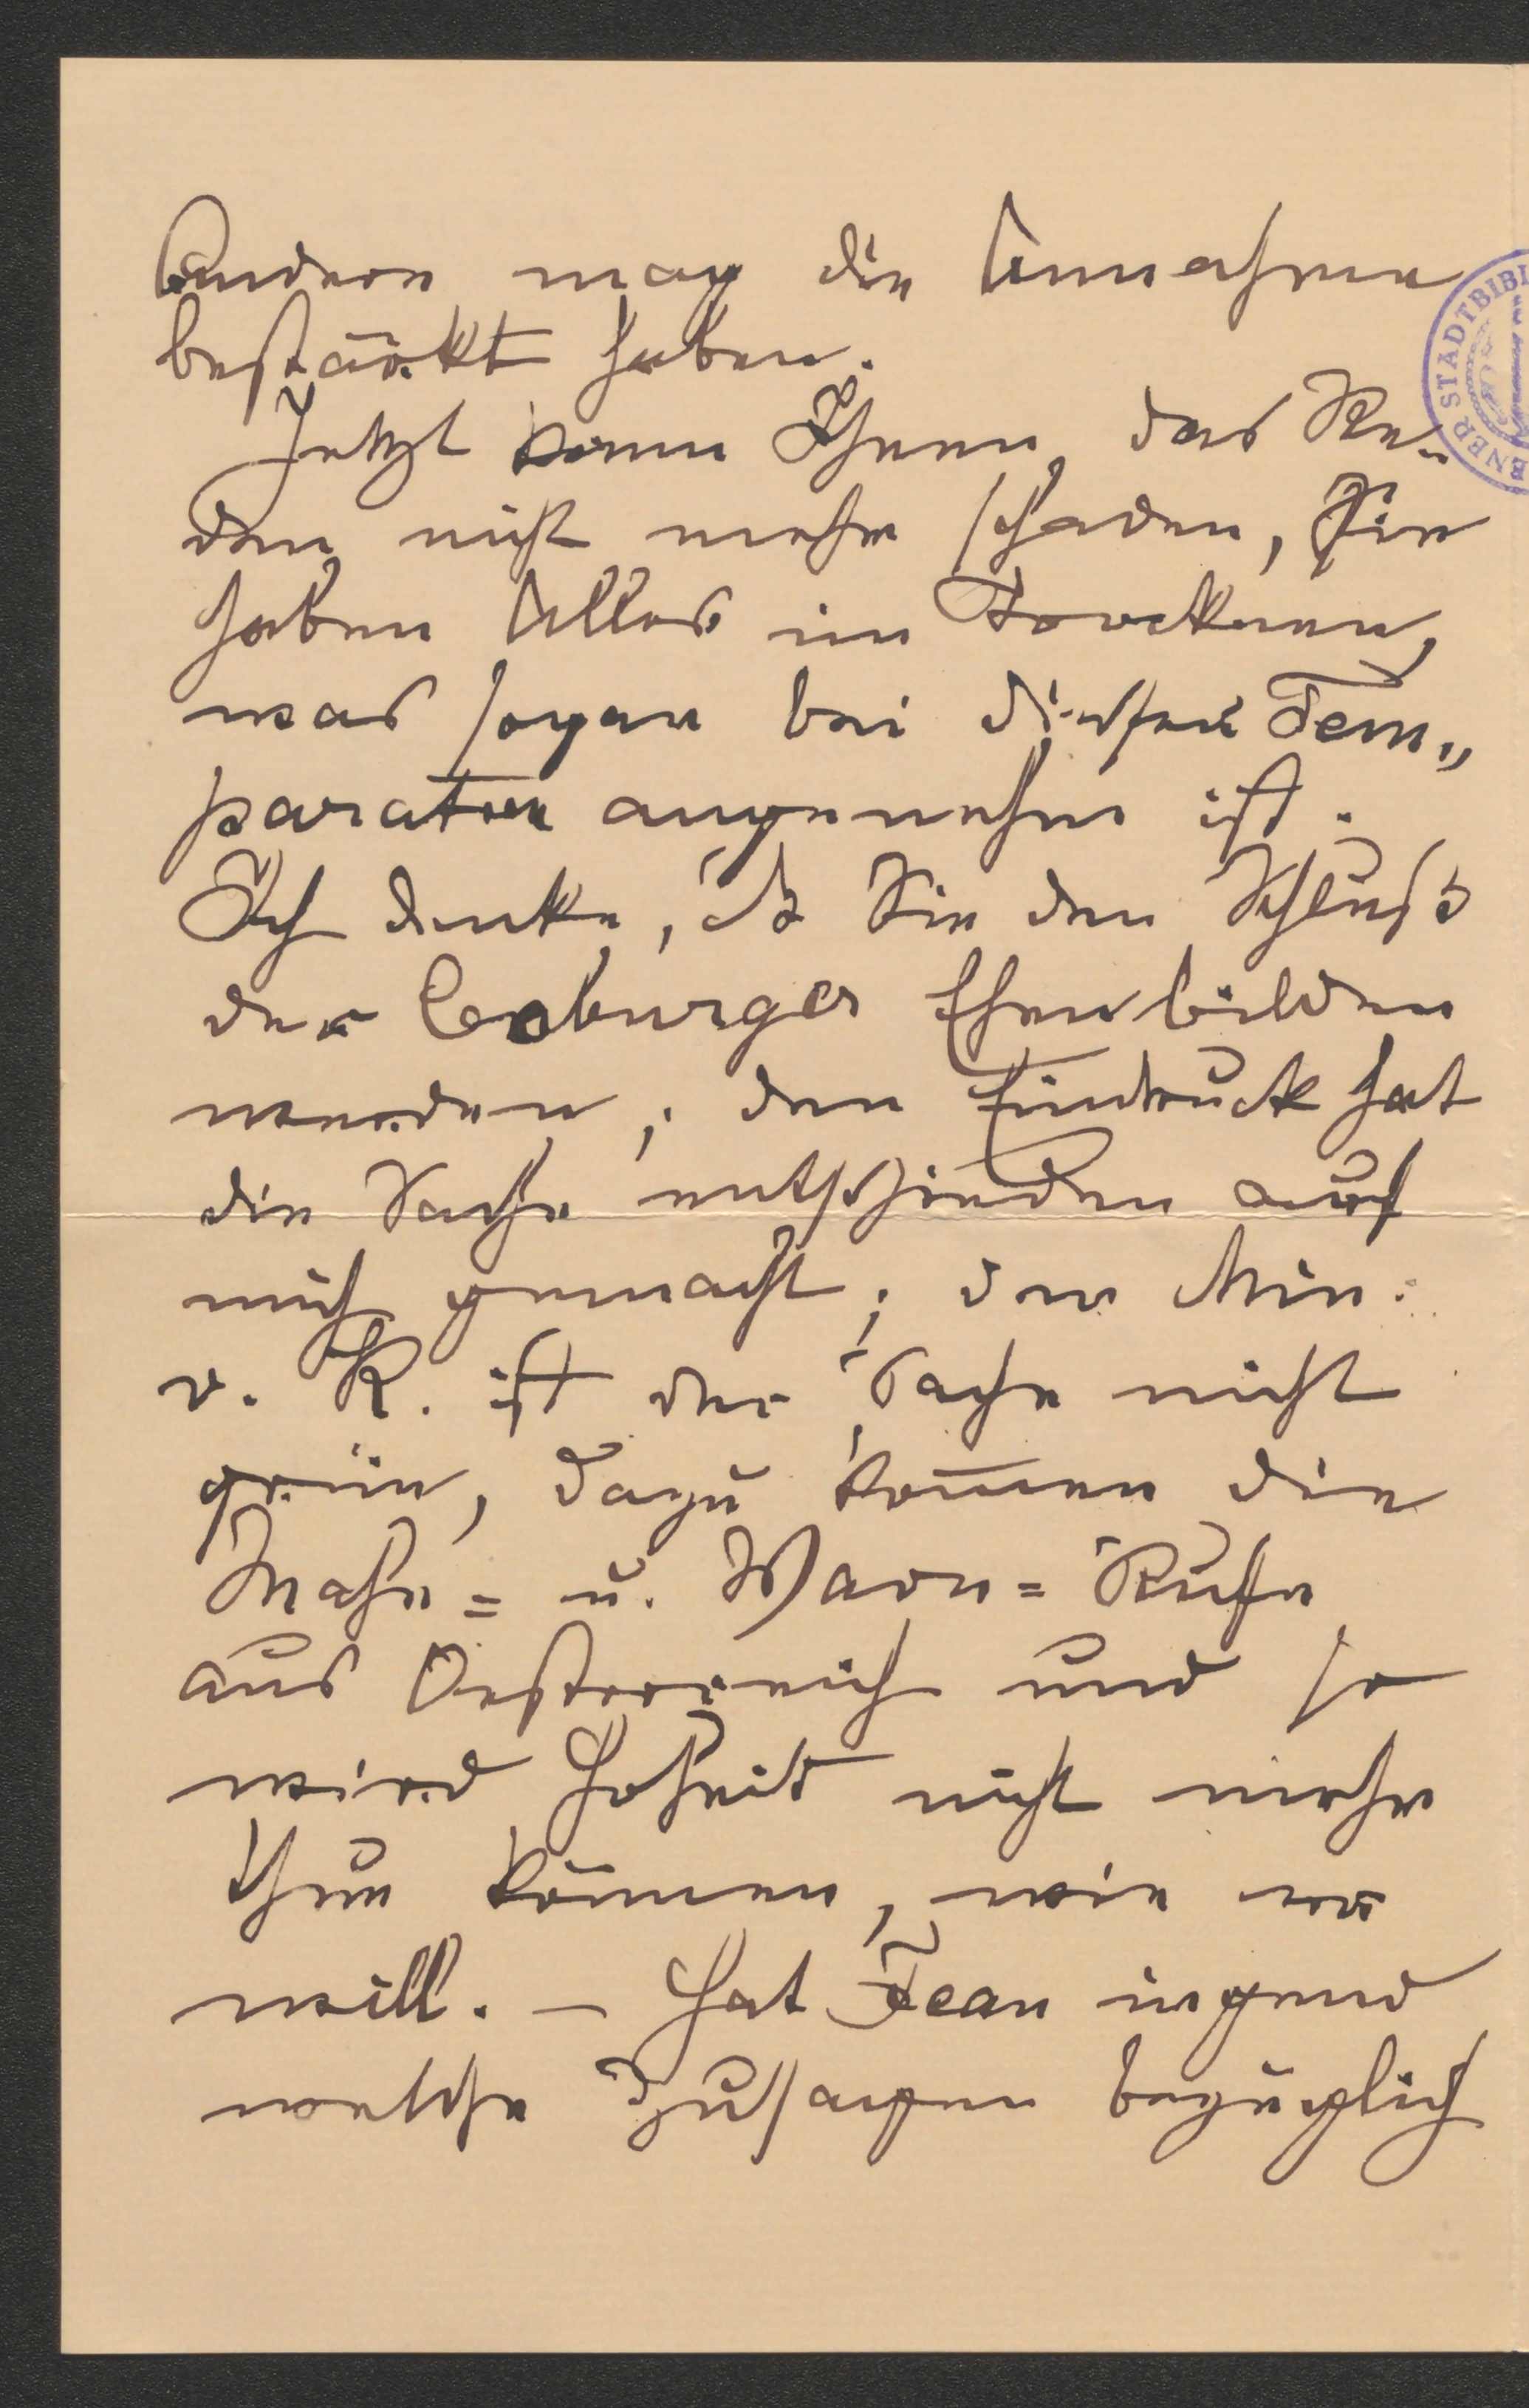 Andere mag die Annahme
bestärkt haben.
Jetzt kann Ihnen das Re-
den nicht mehr schaden, Sie
haben Alles im Trocknen,
was sogar bei dieser Tem„
paratur angenehm ist.
Ich denke, daß Sie den Schluß
der Coburger Ehen bilden
werden; den Eindruck hat
die Sache entschieden auf
mich gemacht; der Min:
v. K. ist der Sache nicht
grün, dazu kom̄en die
Mahn= u. Warn=Rufe
aus Oesterreich und so
wird Hoheit nicht mehr
thun können, wie er
will. – Hat Jean irgend
welche Zusagen bezüglich
STADTBIBL